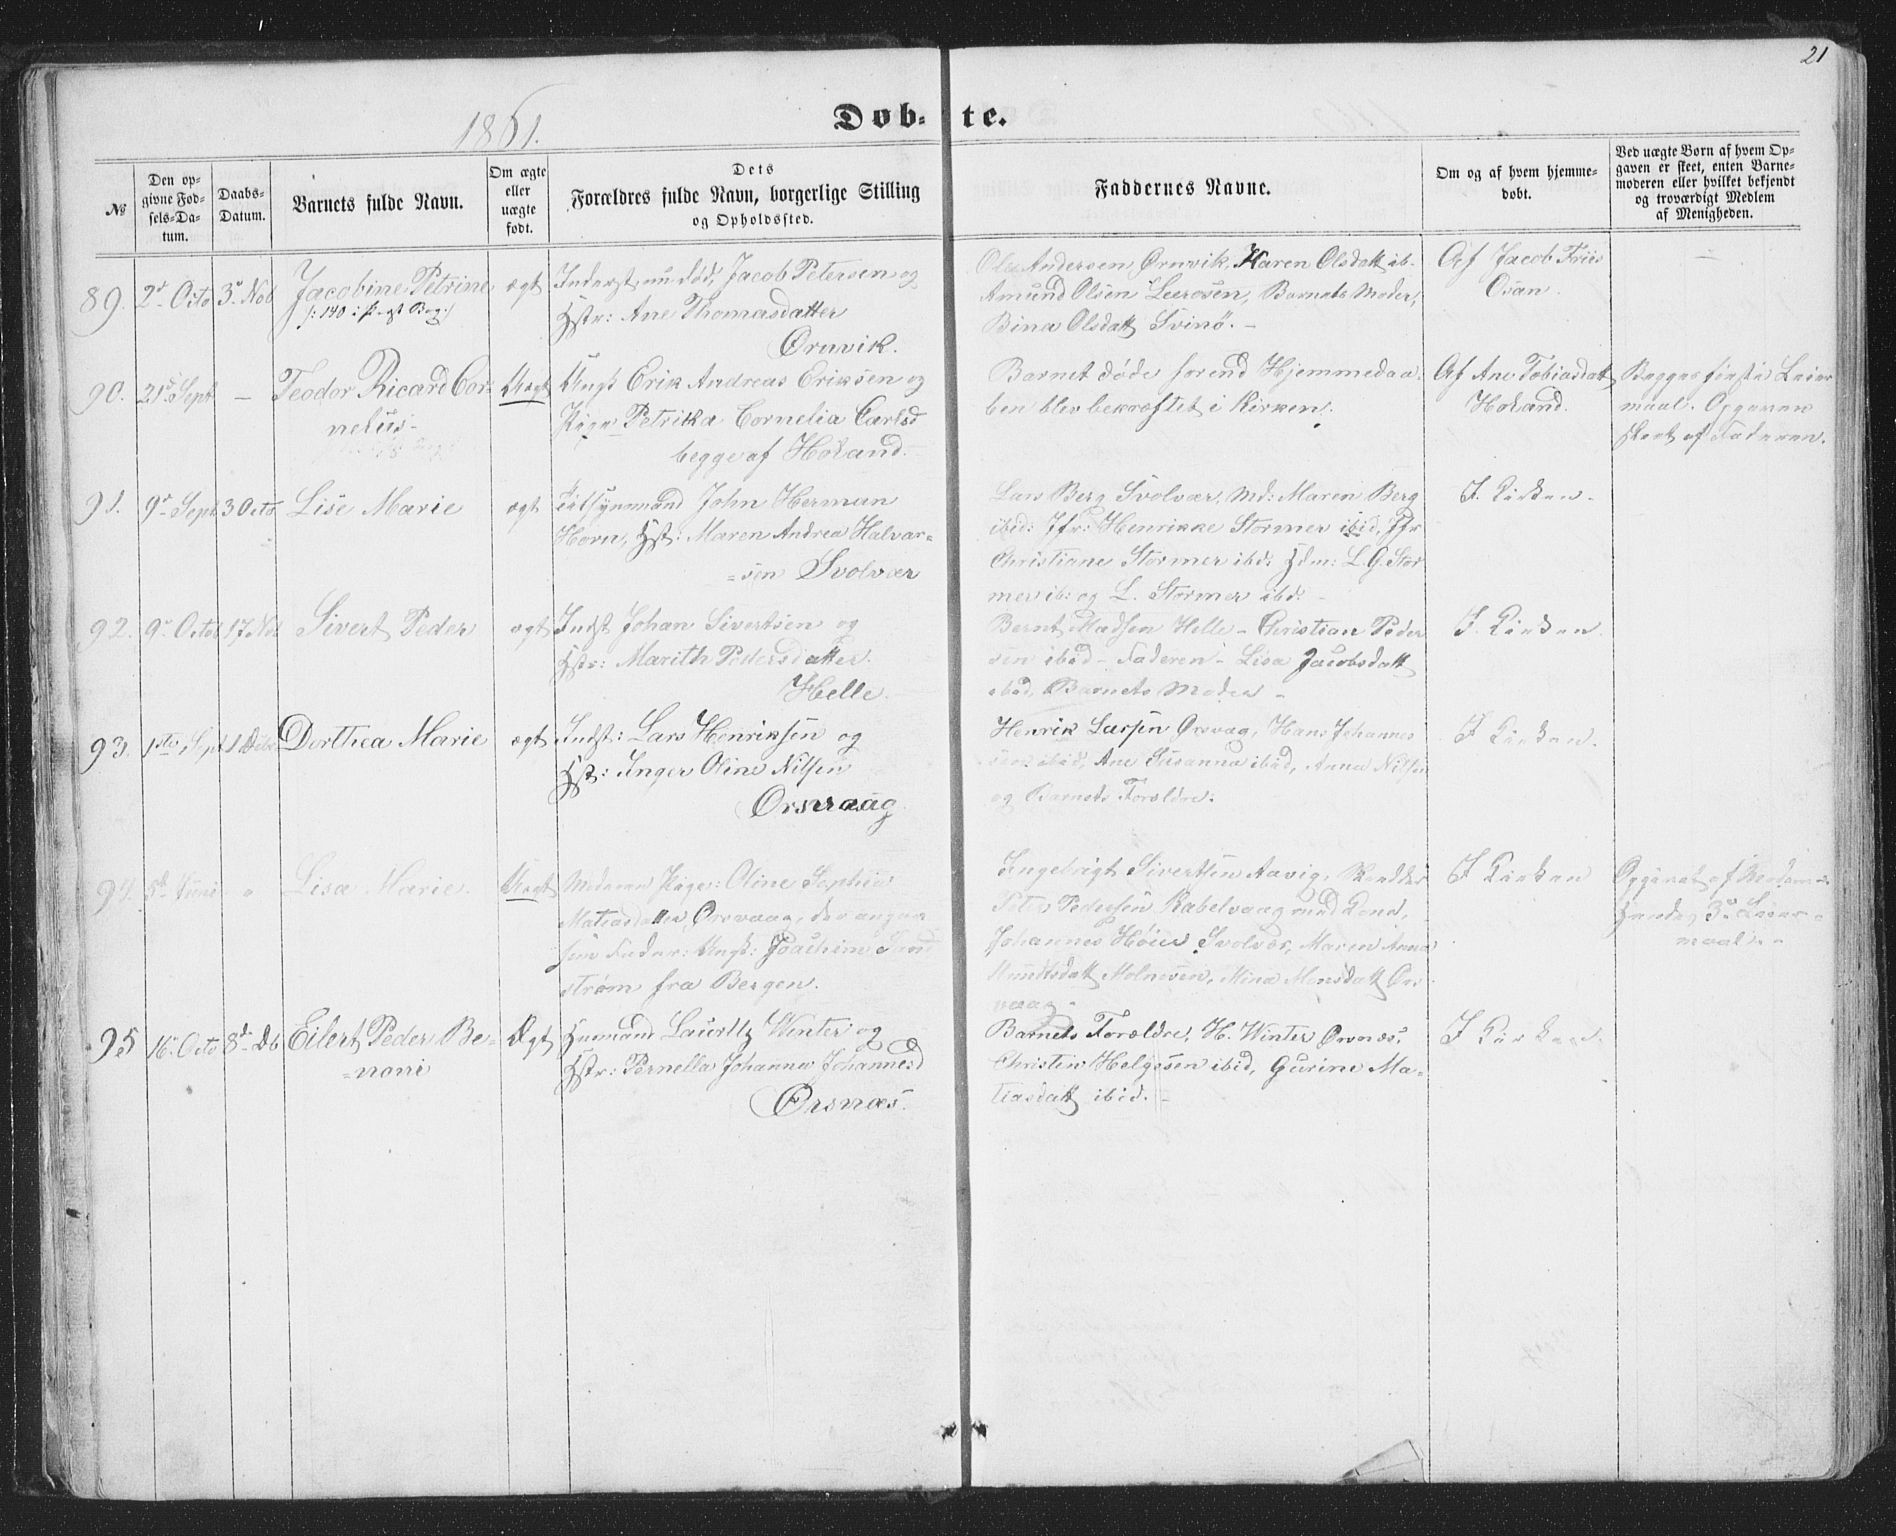 21
1861.
Døb- te.
№
Den op-
givne Fød-
sels-Da-
tum.
Daabs-
Datum.
Barnets fulde Navn.
Om ægte
eller
uægte
født.
Dets
Forældres fulde Navn, borgerlige Stilling
og Opholdssted.
Faddernes Navne.
Om og af hvem hjemme-
døbt.
Ved uægte Børn af hvem Op-
gaven er skeet, enten Barne-
moderen eller hvilket bekjendt
og troværdigt Medlem
af Menigheden.
89. 2d Octo 3d Nob
Jacobine Petrine
ægt
Inderst, nu død, Jacob Petersen og
Hstr: Ane Thomasdatter
Ørnvik.
Ole Andersen Ørnvik, Karen Olsdatt ib.
Amund Olsen Leerosen, Barnets Moder,
Bina Olsdatt Svinø. -
Af Jacob Friis
Osan.
90. 21d Sept -
Teodor Ricard Cor-
nelius -
Uægt
Ungk Erik Andreas Eriksen og
Pige Petrika Cornelia Carlsd
begge af Holand.
Barnet døde førend Hjemmedaa-
ben blev bekræftet i Kirken.
Af Ane Tobiasdatt
Holand.
Begges første Leier-
maal. Opgaven
skeet af Faderen.
91. 9d Sept 3 Octo
Lise Marie
ægt
John Herman
Horn, Hst: Maren Andrea Halvar-
=sen Svolvær
Lars Berg Svolvær, Md: Maren Berg
ibid: Jfr: Henrikke Stormer ibid, Jfr
Christiane Stormer ibd: Hdm: L. G. Stor
mer ib: og L. Stormer ibd: -
I Kirken -
92. 9d Octob 17 Nob
Sivert Peder
ægt
Indst Johan Sivertsen og
Hstr: Marith Pedersdatter.
Helle.
Bernt Madsen Helle - Christian Peder
sen ibid - Faderen - Lisa Jacobsdatt
ibid, Barnets Moder -
I Kirken.
93. 1ste Sept 1 Debr
Dorthea Marie
ægt
Indst: Lars Henriksen og
Hst: Inger Oline Nilsen
Ørsvaag.
Henrik Larsen Ørsvag, Hans Johannes
sen ibid, Ane Susanna ibid, Anna Nilsen
og Barnets Forældre.
I Kirken.
94. 5d Juni "
Lisa Marie.
Uægt
Moderen Pige: Oline Sophie
Matiasdatter Ørsvaag, den angiv
ne Fader: Ungk: Joachim San
strøm fra Bergen.
Ingebrigt Sivertsen Aavig,
Peter Pedersen Kabelvaag
Johannes Høier Svolvær, Maren Anna
Molnosen, Mina Monsdatt Ørs
vaag -
I Kirken
Opgivet af
3d Leier-
maal -
95 16d Octo 8d Db
Eilert Peder Be-
=noni
Ægt
Husmand Lauritz Winter og
Hstr: Pernella Johanna Johannesd
Ørsnæs.
Barnets Forældre, H. Winter Ørsnæs,
Christin Helgesen ibid, Gurine Ma-
tiasdatt ibid. -
I Kirken.